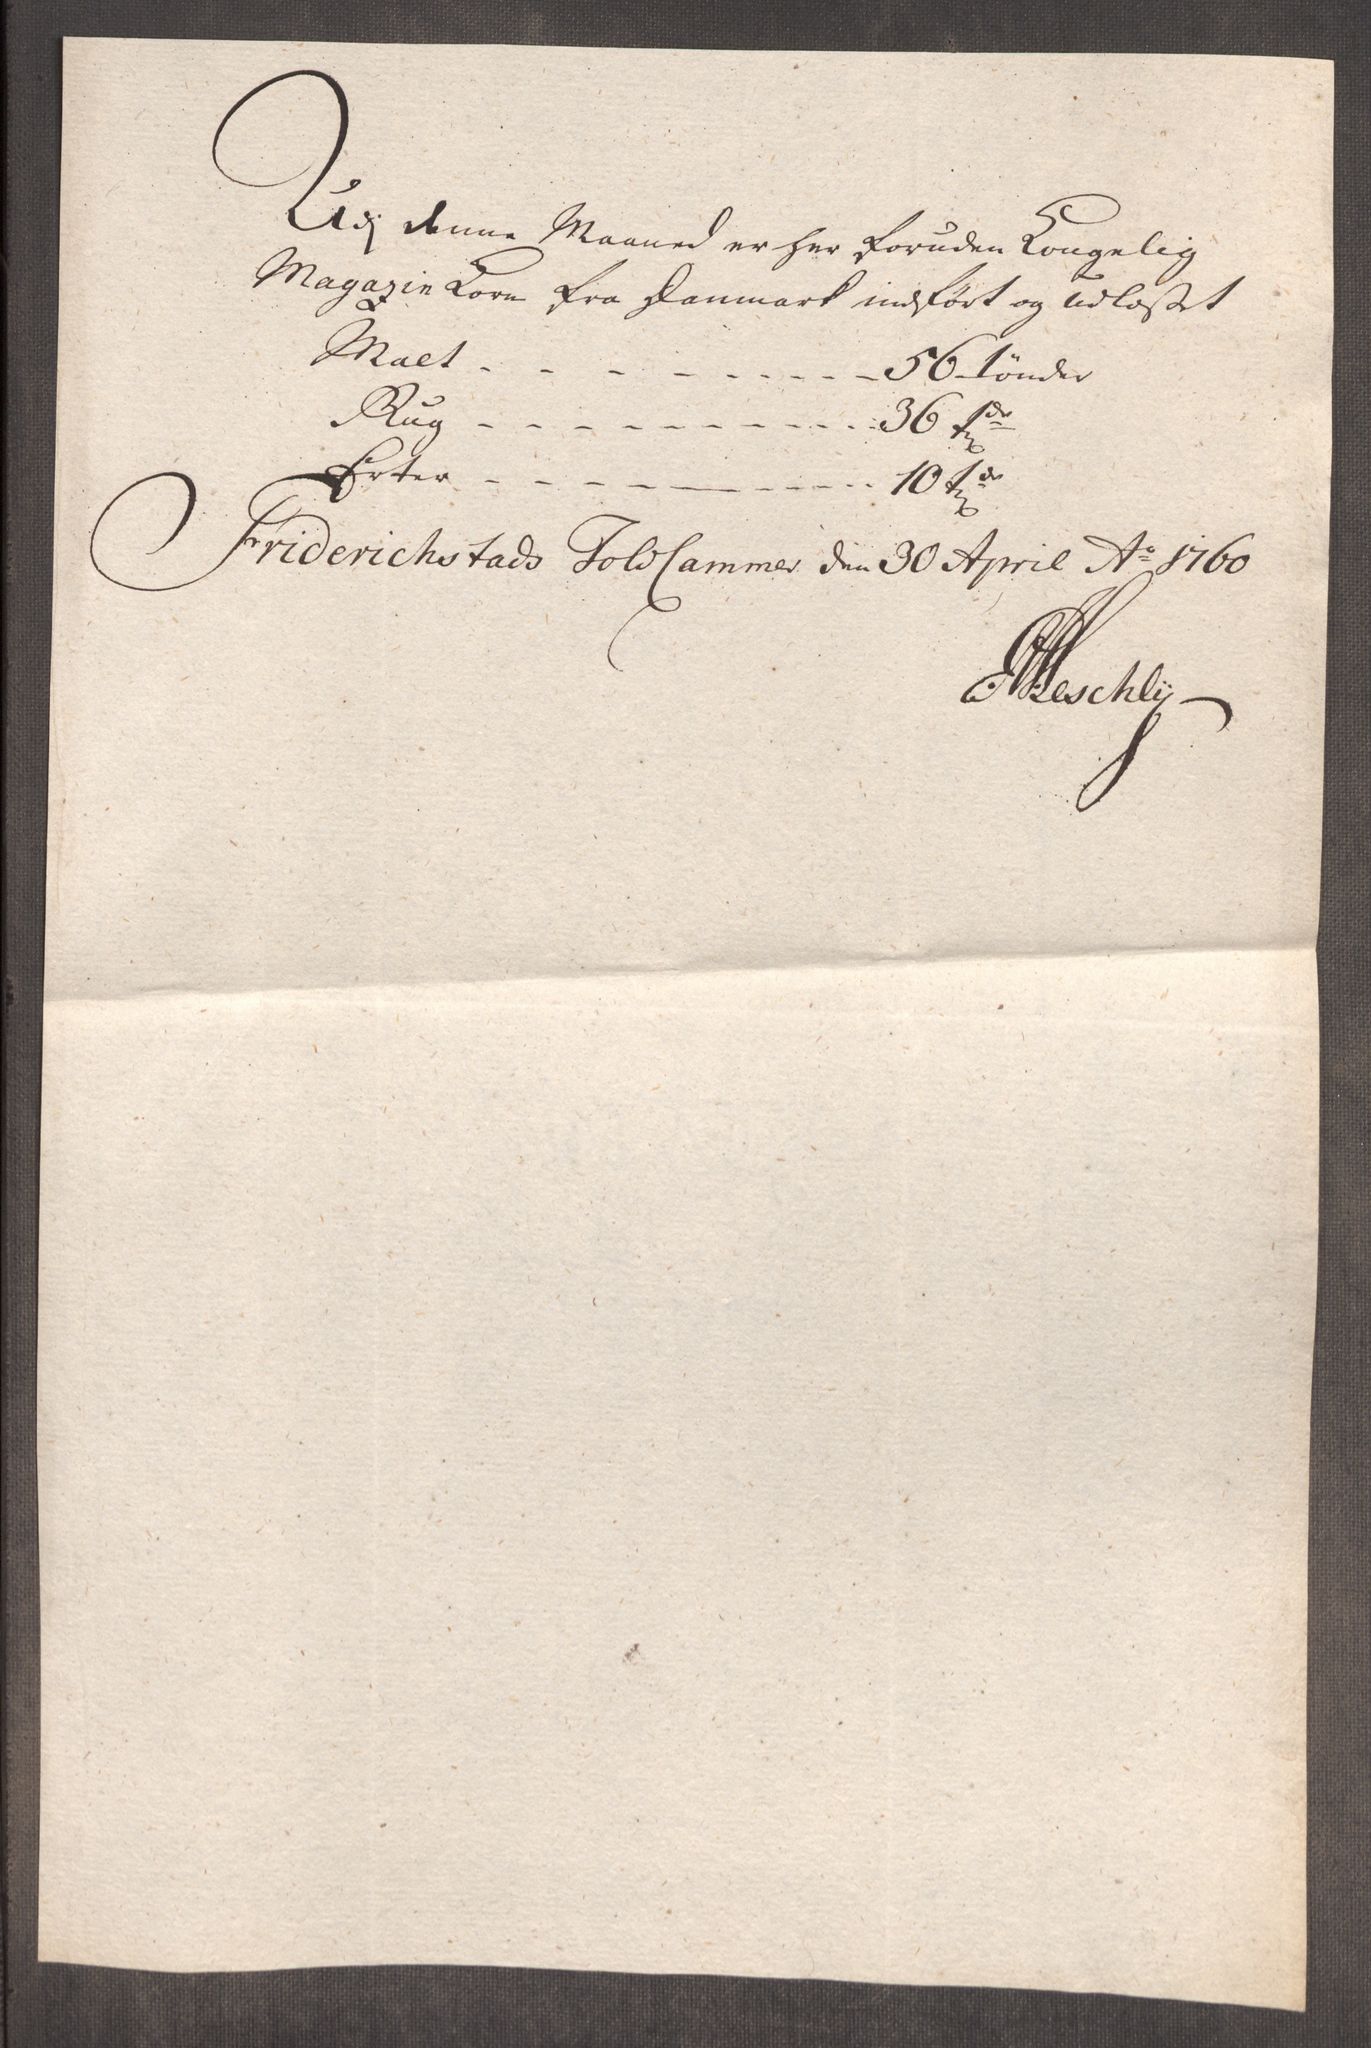 Udj denne Maaned er her foruden Kongelig
Magazin Korn fra Danmark indført og udlosset
Malt - - - - - - - - - - 56 tönder
Rug - - - - - - - - - - 36 tdr
Erter - - - - - - - - - - 10 tdr
Friderichstads Told Cammer den 30 April Ao 1760